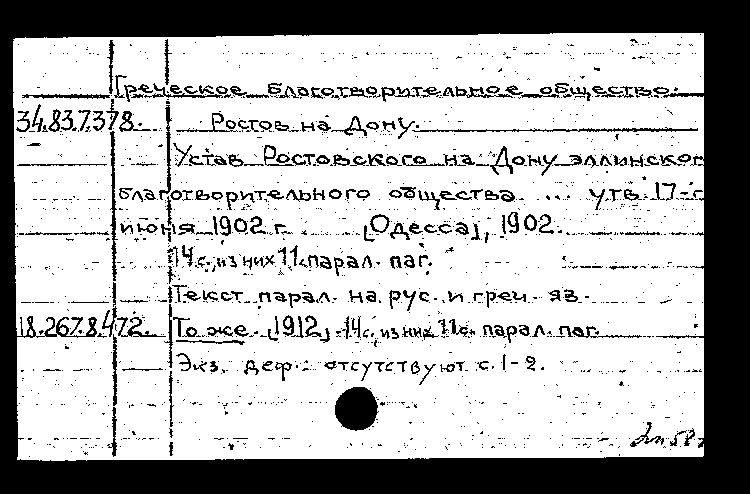 Греческое благотворительное общество.
34.83.7.378. Ростов на Дону.
Устав Ростовского на Дону эллинског
благотворительного общества ... утв. 17-г
июня 1902 г. [Одесса], 1902.
14 с., из них 11 с. парал. паг.
Текст парал. на рус. и греч. яз.
18.267.8.472. То же. [1912]. 14 с., из них 11 с. парал. паг.
Экз. деф.: отсутствуют с. 1-2.